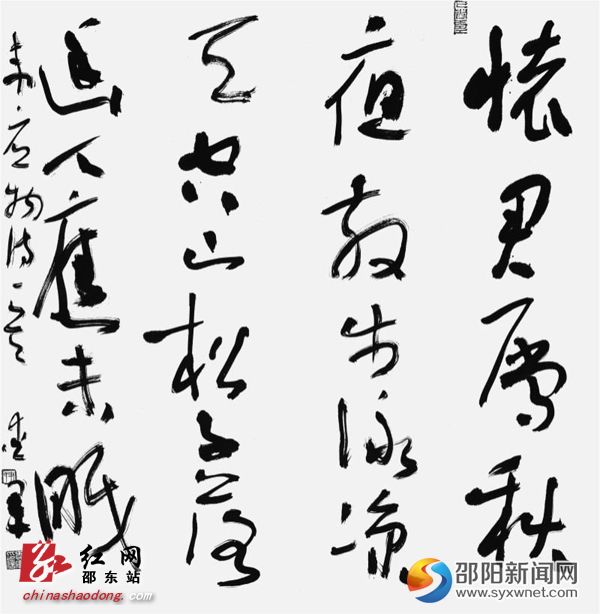 懷君屬秋
夜散步詠涼
天空山松子落
幽人應未眠
韋應物詩一首
红网
邵东站
chinashaodong.com
邵阳新闻网
www.syxwnet.com